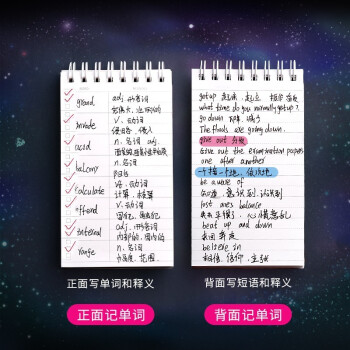 grand
adj. 形容词
invade
v. 动词
侵略, 侵入
acid
n. 名词 adj.
balcony
n. 名词
阳台
calculate
v. 动词
计算, 核算
offend
v. 动词
internal
adj. 形容词
内部的, 国内的
range
n. 名词
范围
get up 起床
what time do you normally get up?
go down 下降
The floods are going down.
give out 分发
Give out the examination papers
one after another
一个接一个地, 依次地
be aware of
意识到
lost one's balance
beat up and down
believe in
相信, 信仰
正面写单词和释义
背面写短语和释义
正面记单词
背面记单词